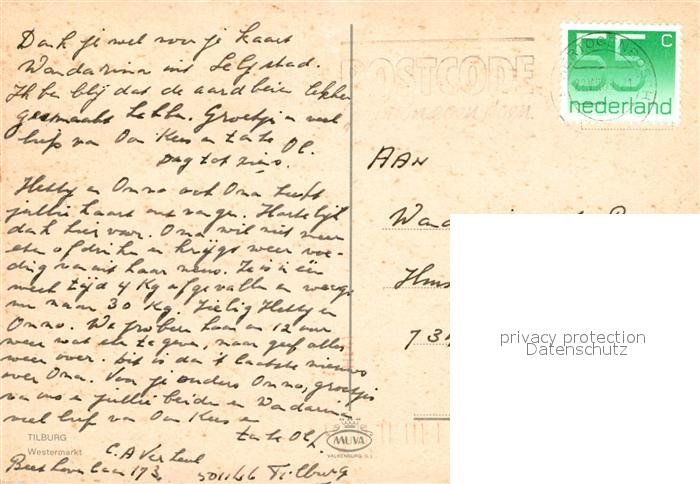 Dank je wel voor je kaart
Wandarina uit Lelystad.
Ik ben blij dat de aardbeien lekker
gesmaakt hebben. Groetjes en veel
liefs van Om Kees en tante Ol.
Dag tot ziens.
Hetty en Onno ook Oma heeft
jullie kaart ontvangen. Hartelijk
dank hiervoor. Oma wil niet meer
eten of drinken en krijgt weer voe-
ding vanuit haar neus. Ze is in één
week tijd 4 Kg afgevallen en weegt
nu maar 30 Kg. Zielig Hetty en
Onno. We proberen haar om 12 uur
weer wat eten te geven, maar geef alles
weer over. Dit is dan 't laatste nieuws
over Oma. Van je ouders Onno, groetjes
van ons en jullie beiden en Wandarina
veel liefs van Om Kees en
tante Ol
TILBURG
Westermarkt
C.A Verheul
Beethovenlaan 173
Tilburg
MUVA
VALKENBURG
POSTCODE
55 c
nederland
AAN
privacy protection
Datenschutz